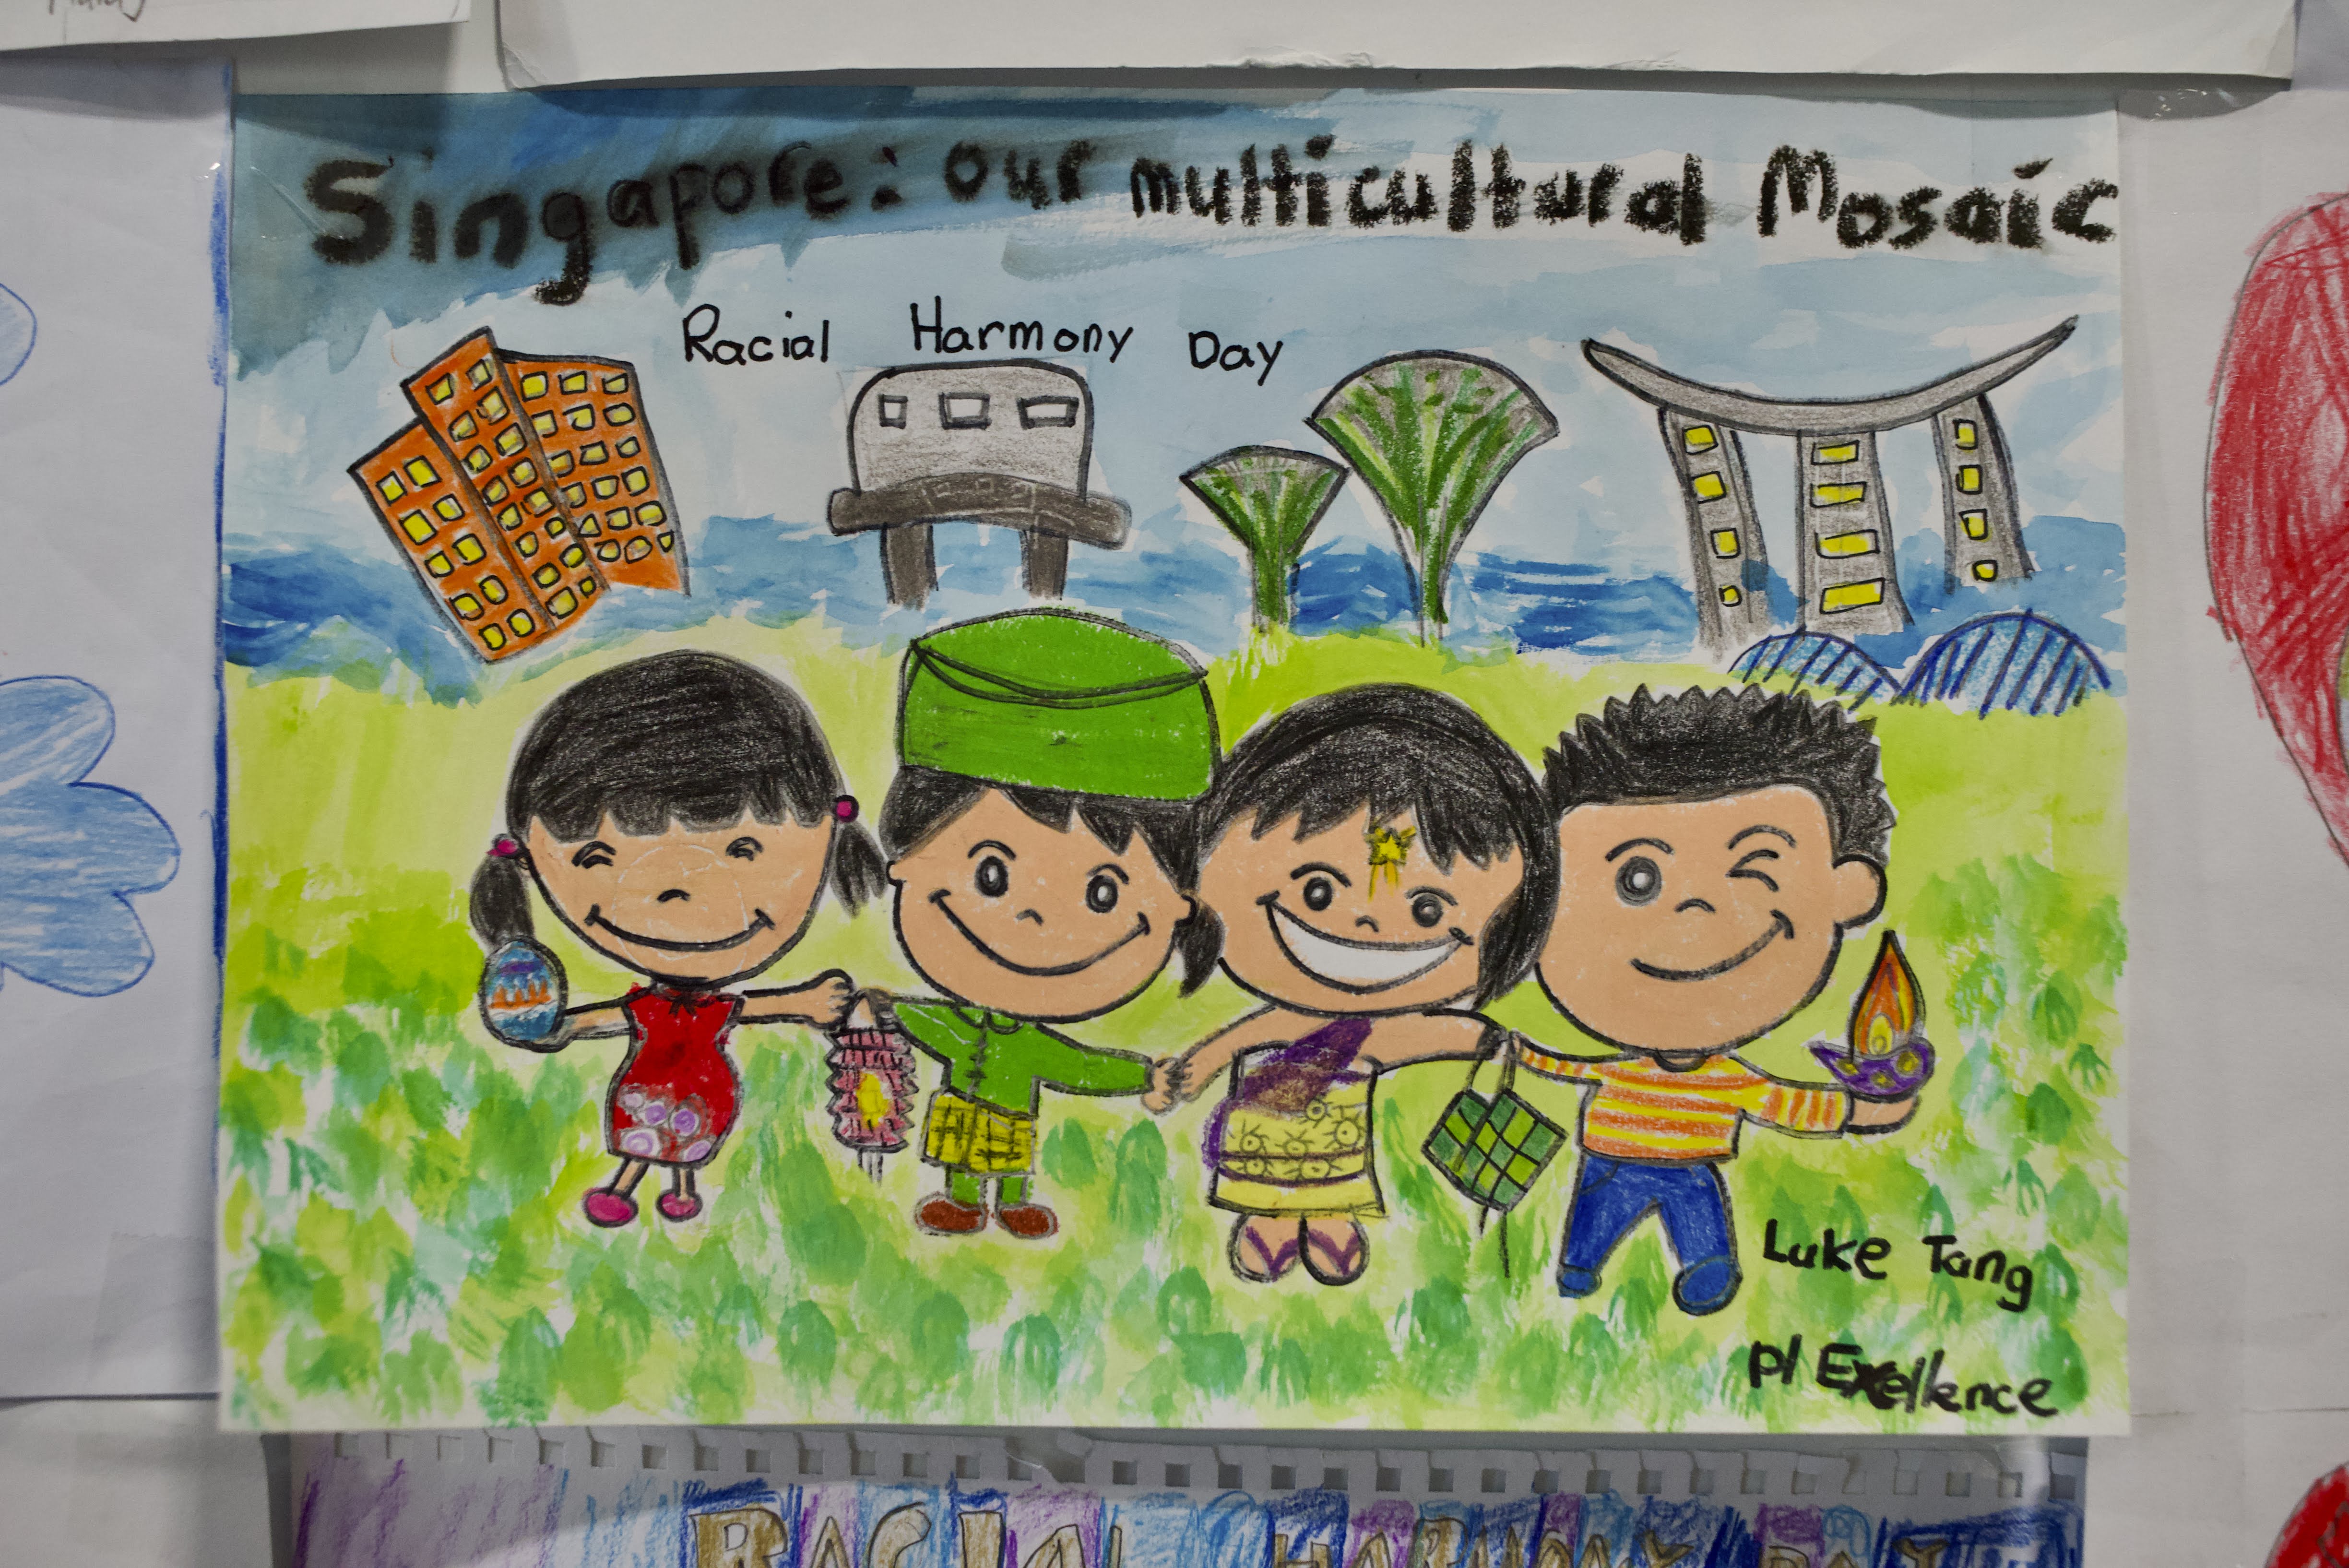 Singapore: our multicultural Mosaic
Racial Harmony Day
Luke Tang
P1 Exellence
RACIAL HARMONY DAY